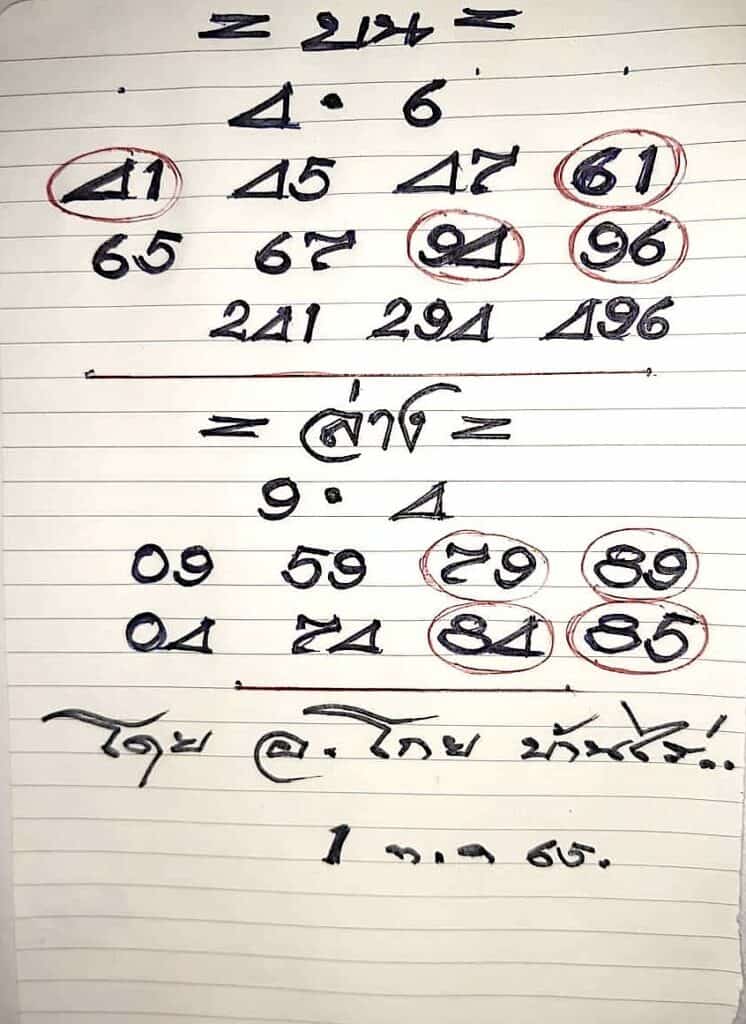 = บน =
4 · 6
41 45 47 61
65 67 94 96
241 294 496
= ล่าง =
9 · 4
09 59 79 89
04 74 84 85
โดย อ. โกย บ้านไร่..
1 ก.ค 65.